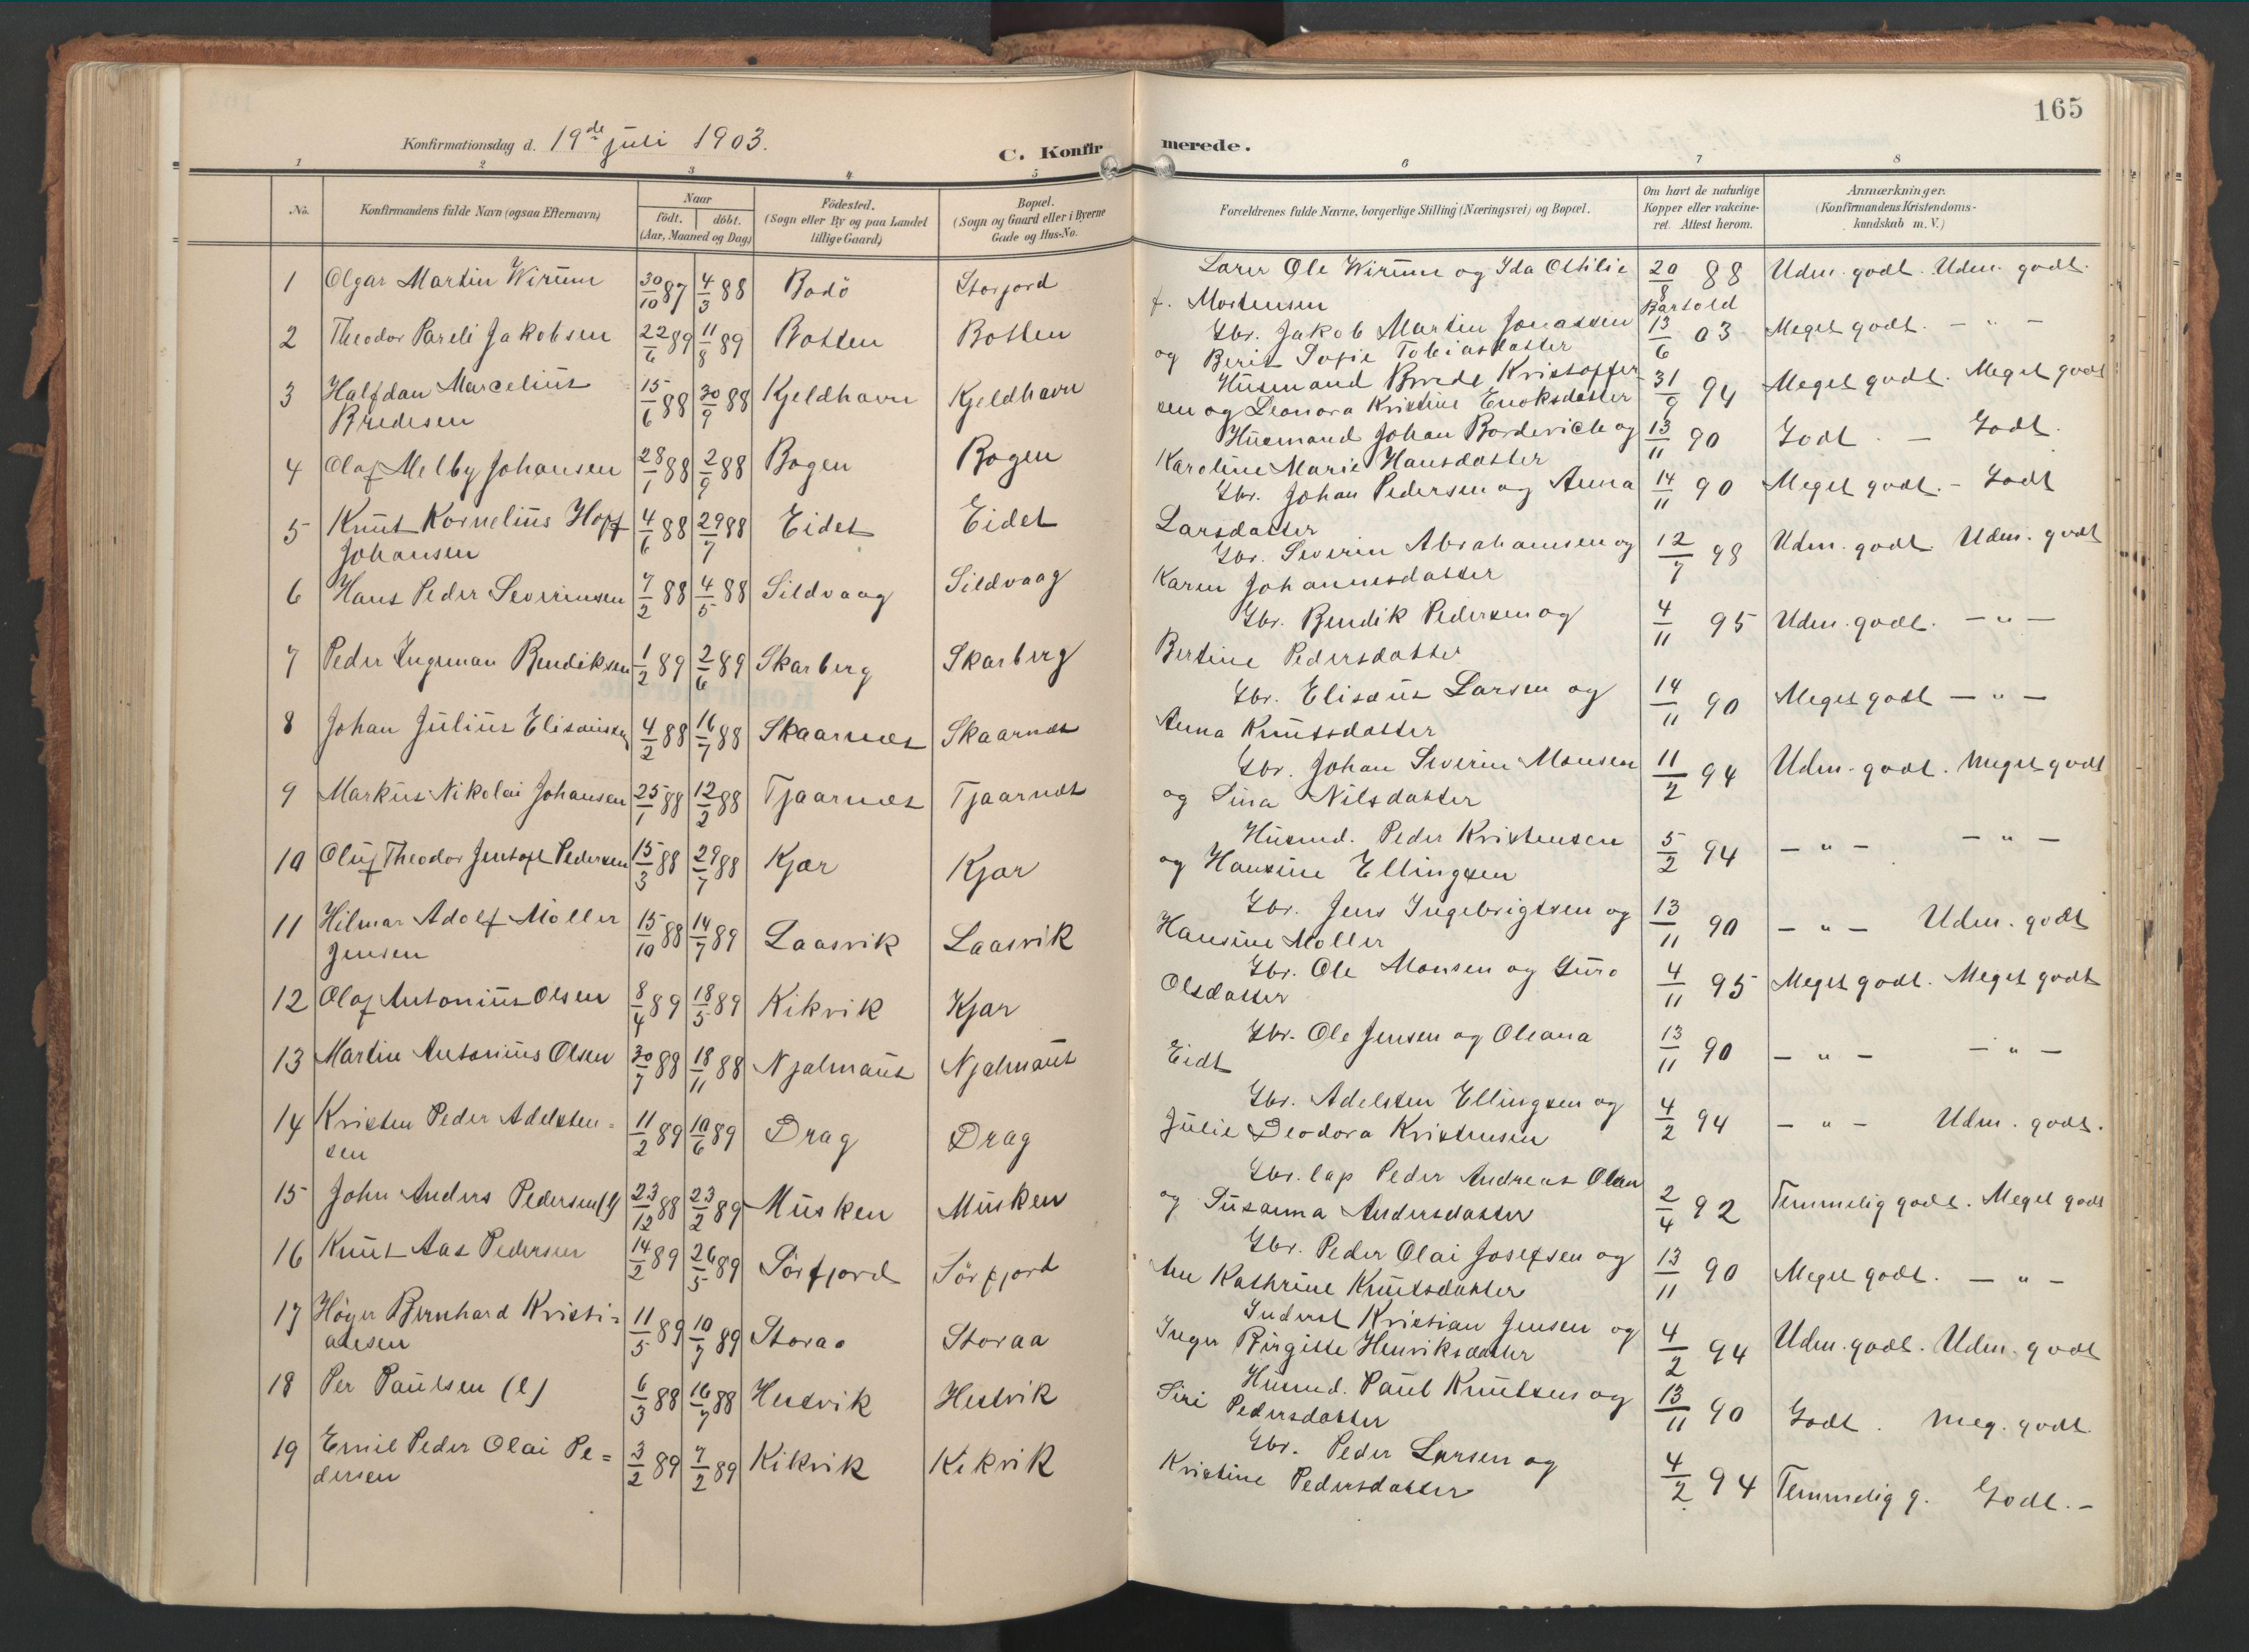 165
Konfirmationsdag d. 19de juli 1903.
C. Konfirmerede.
1 2 3 4 5 6 7 8
No.
Konfirmandens fulde Navn (ogsaa Efternavn)
Naar
födt. döbt.
(Aar, Maaned og Dag)
Födested.
(Sogn eller By og paa Landet
tillige Gaard)
Bopæl.
(Sogn og Gaard eller i Byerne
Gade og Hus-No.
Forældrenes fulde Navne, borgerlige Stilling (Næringsvei) og Bopæl.
Om havt de naturlige
Kopper eller vakcine-
ret. Attest herom.
Anmærkninger.
(Konfirmandens Kristendoms-
kundskab m. V.)
1 Olgar Martin Wirum 30/10 87 4/3 88 Bodö Storjord Lærer Ole Wirum og Ida Ottilie 20/8 88 Udm. godt. Udm. godt.
f. Mortensen Barsold
2 Theodor Pareli Jakobsen 22/6 89 11/8 89 Botten Botten Gbr. Jakob Martin Jonassen 13/6 03 Meget godt. - " -
og Berit Sofie Tobiasdatter
3 Halfdan Marcelius 15/6 88 30/9 88 Kjeldhavn Kjeldhavn Husmand Brede Kristoffer- 31/9 94 Meget godt. Meget godt
Bredesen sen og Leonora Kristine Enoksdatter
4 Olaf Melby Johansen 28/1 88 2/9 88 Bogen Bogen Husmand Johan Borderich og 13/11 90 Godt. - Godt.
Karoline Marie Hansdatter
5 Knut Kornelius Hoff 4/6 88 29/7 88 Eidet Eidet Gbr. Johan Pedersen og Anna 14/11 90 Meget godt. - Godt
Johansen Larsdatter
6 Hans Peder Severinsen 7/2 88 4/5 88 Sildvaag Sildvaag Gbr. Severin Abrahamsen og 12/7 98 Udm. godt Udm. godt
Karen Johannesdatter
7 Peder Ingeman Bendiksen 1/2 89 2/6 89 Skarberg Skarberg Gbr. Bendik Pedersen og 4/11 95 Udm. godt. - " -
Bertine Pedersdatter
8 Johan Julius Elisæussen 4/2 88 16/7 88 Skaarnes Skaarnes Gbr. Elisæus Larsen og 14/11 90 Meget godt - " -
Anna Knutsdatter
9 Markus Nikolai Johansen 25/1 88 12/2 88 Tjaarnes Tjaarnes Gbr. Johan Severin Monsen 11/2 94 Udm. godt. Meget godt
og Sina Nilsdatter
10 Oluf Theodor Jentoft Pedersen 15/3 88 29/7 88 Kjær Kjær Husmd. Peder Kristensen 5/2 94 - " - - " -
og Hansine Ellingsen
11 Hilmar Adolf Möller 15/10 88 14/7 89 Laasvik Laasvik Gbr. Jens Ingebrigtsen og 13/11 90 - " - Udm. godt
Jensen Hansine Möller
12 Olaf Antonius Olsen 8/4 89 18/5 89 Kikvik Kjær Gbr. Ole Monsen og Guro 4/11 95 Meget godt. Meget godt
Olsdatter
13 Martin Antonius Olsen 30/7 88 18/11 88 Njalmaut Njalmaut Gbr. Ole Jensen og Oleana 13/11 90 - " - - " -
Eidt
14 Kristen Peder Adelsten= 11/2 89 10/6 89 Drag Drag Gbr. Adelsten Ellingsen og 4/2 94 - " - Udm. godt.
sen Julie Deodora Kristensen
15 John Anders Pedersen (l) 23/12 88 23/2 89 Musken Musken Gbr. lap Peder Andreas Olsen 2/4 92 Temmelig godt. Meget godt
og Susanna Andersdatter
16 Knut Aas Pedersen 14/2 89 26/5 89 Sörfjord Sörfjord Gbr. Peder Olai Josefsen og 13/11 90 Meget godt. - " -
Ane Kathrine Knutsdatter
17 Höger Bernhard Kristi= 11/5 89 10/7 89 Storaa Storaa Inderst Kristian Jensen og 4/2 94 Udm. godt. Udm. godt
ansen Inger Birgitte Henriksdatter
18 Per Paulsen (l) 6/3 88 16/7 88 Hestvik Hestvik Husmd. Paul Knutsen og 13/11 90 Godt. Meg. godt.
Siri Pedersdatter
19 Emil Peder Olai Pe= 3/2 89 7/2 89 Kikvik Kikvik Gbr. Peder Larsen og 4/2 94 Temmelig g. Godt. -
dersen Kristine Pedersdatter